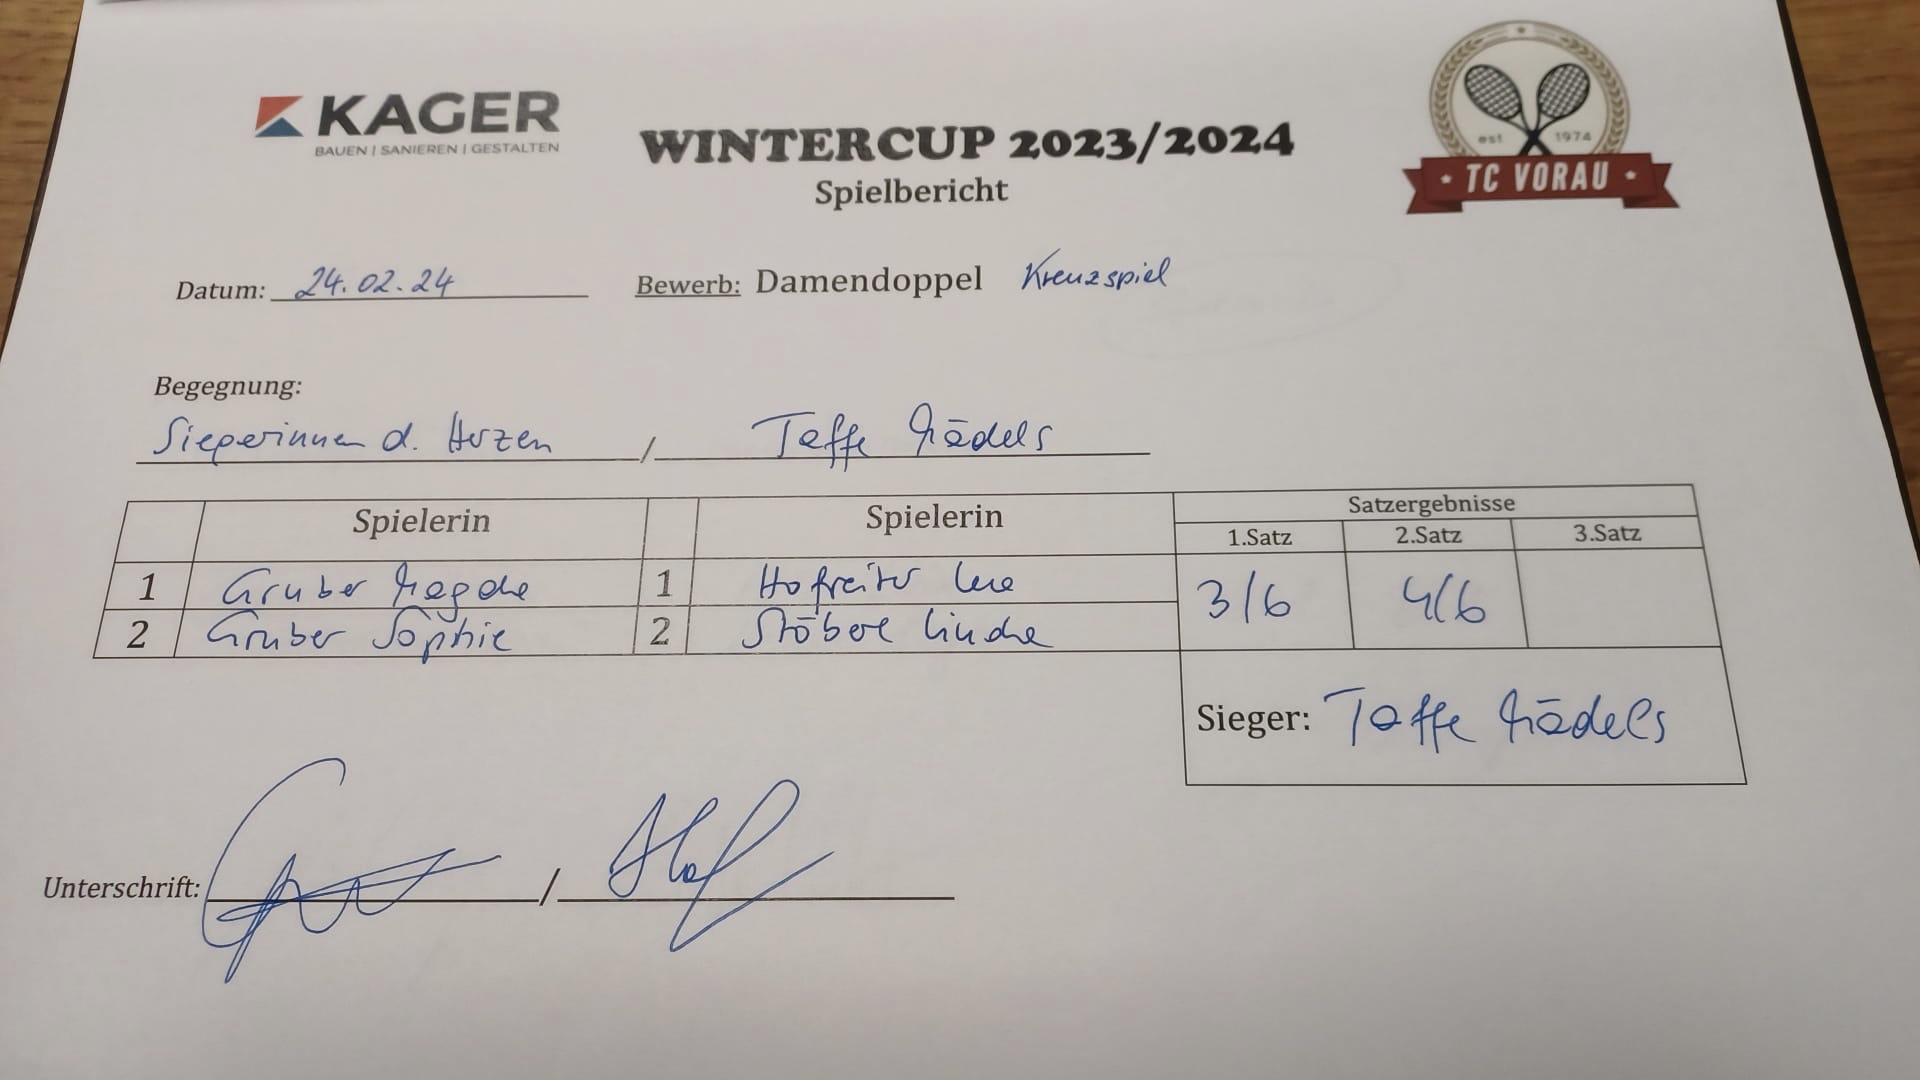 KAGER
BAUEN | SANIEREN | GESTALTEN
WINTERCUP 2023/2024
Spielbericht
est 1974
TC VORAU
Datum: 24.02.24 Bewerb: Damendoppel Kreuzspiel
Begegnung:
Siegerinnen d. Herzen / Taffe Mädels
Spielerin Spielerin Satzergebnisse
1.Satz 2.Satz 3.Satz
1 Gruber Magda 1 Hofreiter 3/6 4/6
2 Gruber Sophie 2 Linda
Sieger: Taffe Mädels
Unterschrift: /